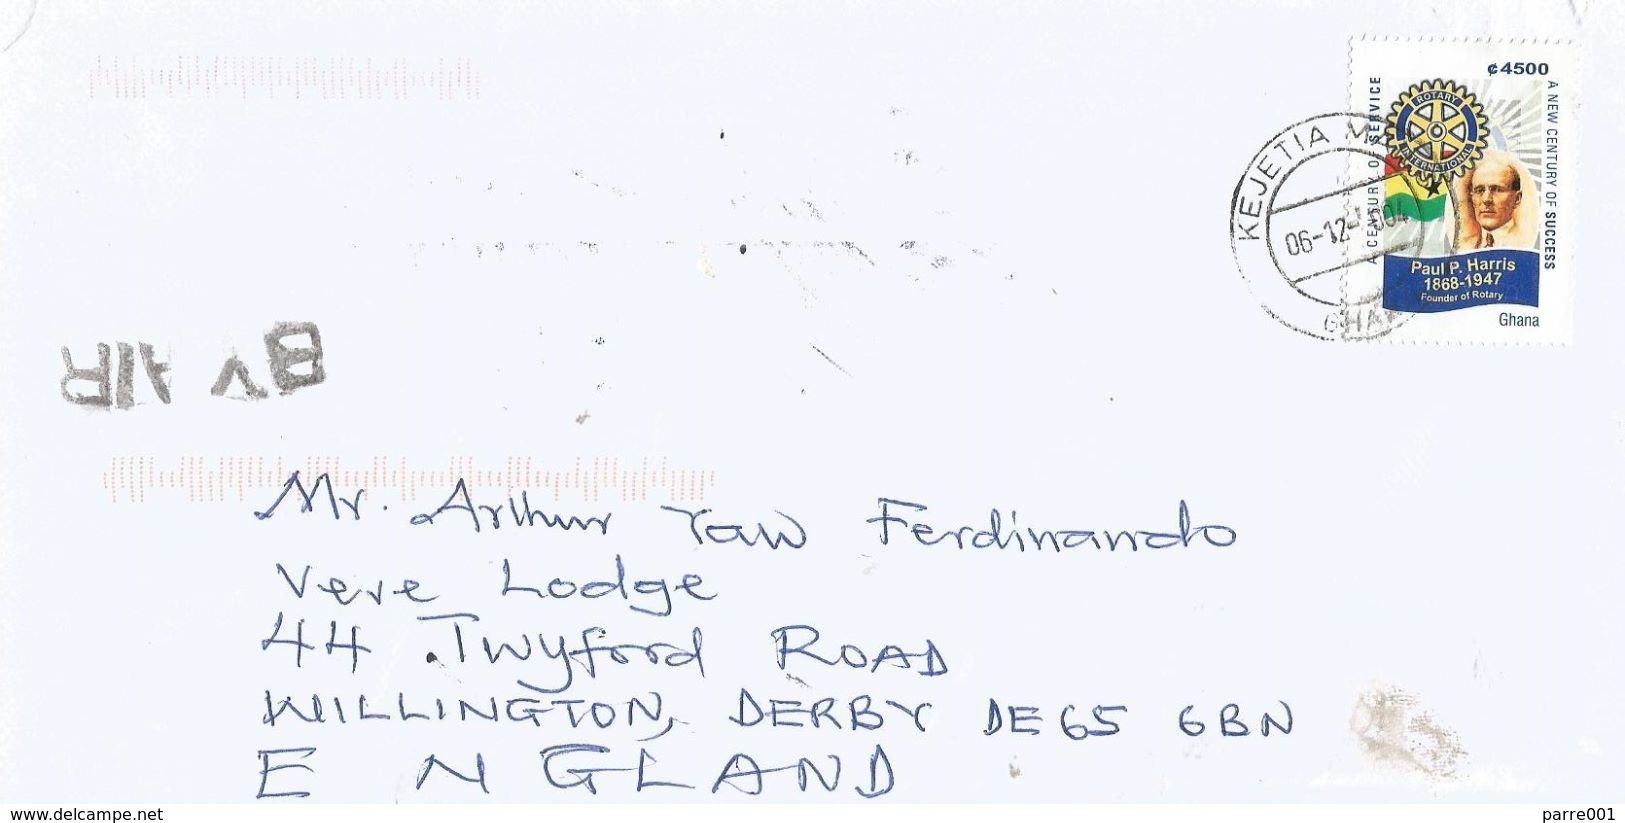 ¢4500
A CENTURY OF SERVICE
A NEW CENTURY OF SUCCESS
ROTARY
INTERNATIONAL
Paul P. Harris
1868-1947
Founder of Rotary
Ghana
KEJETIA
06-12-
BY AIR
Mr. Arthur Yaw Ferdinando
Vere Lodge
44 Twyford ROAD
WILLINGTON, DERBY DE65 6BN
ENGLAND
delcampe.net
parre001